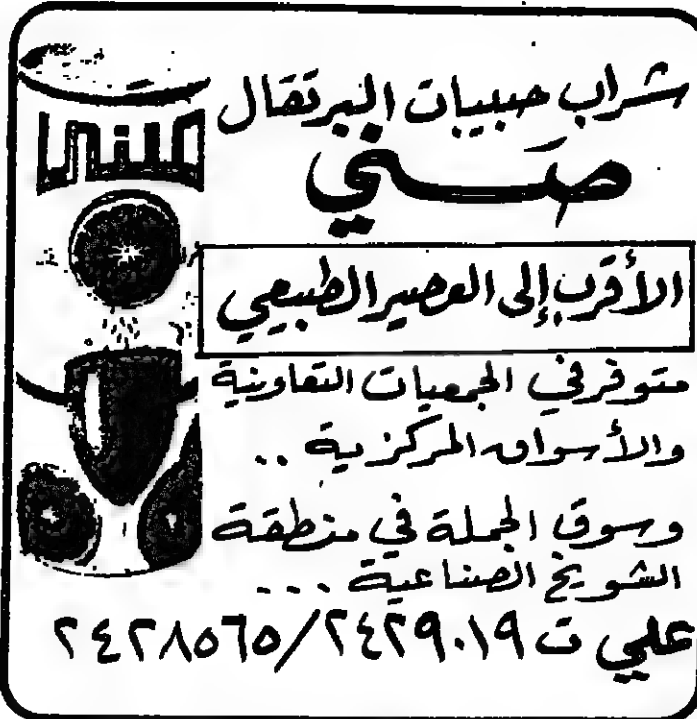 شراب حبيبات البرتقال
صني
الأقرب إلى العصير الطبيعي
متوفر في الجمعيات التعاونية
والأسواق المركزية ..
وسوق الجملة في منطقة
الشويخ الصناعية ...
علي ت ٢٤٢٩٠١٩/٢٤٢٨٥٦٥